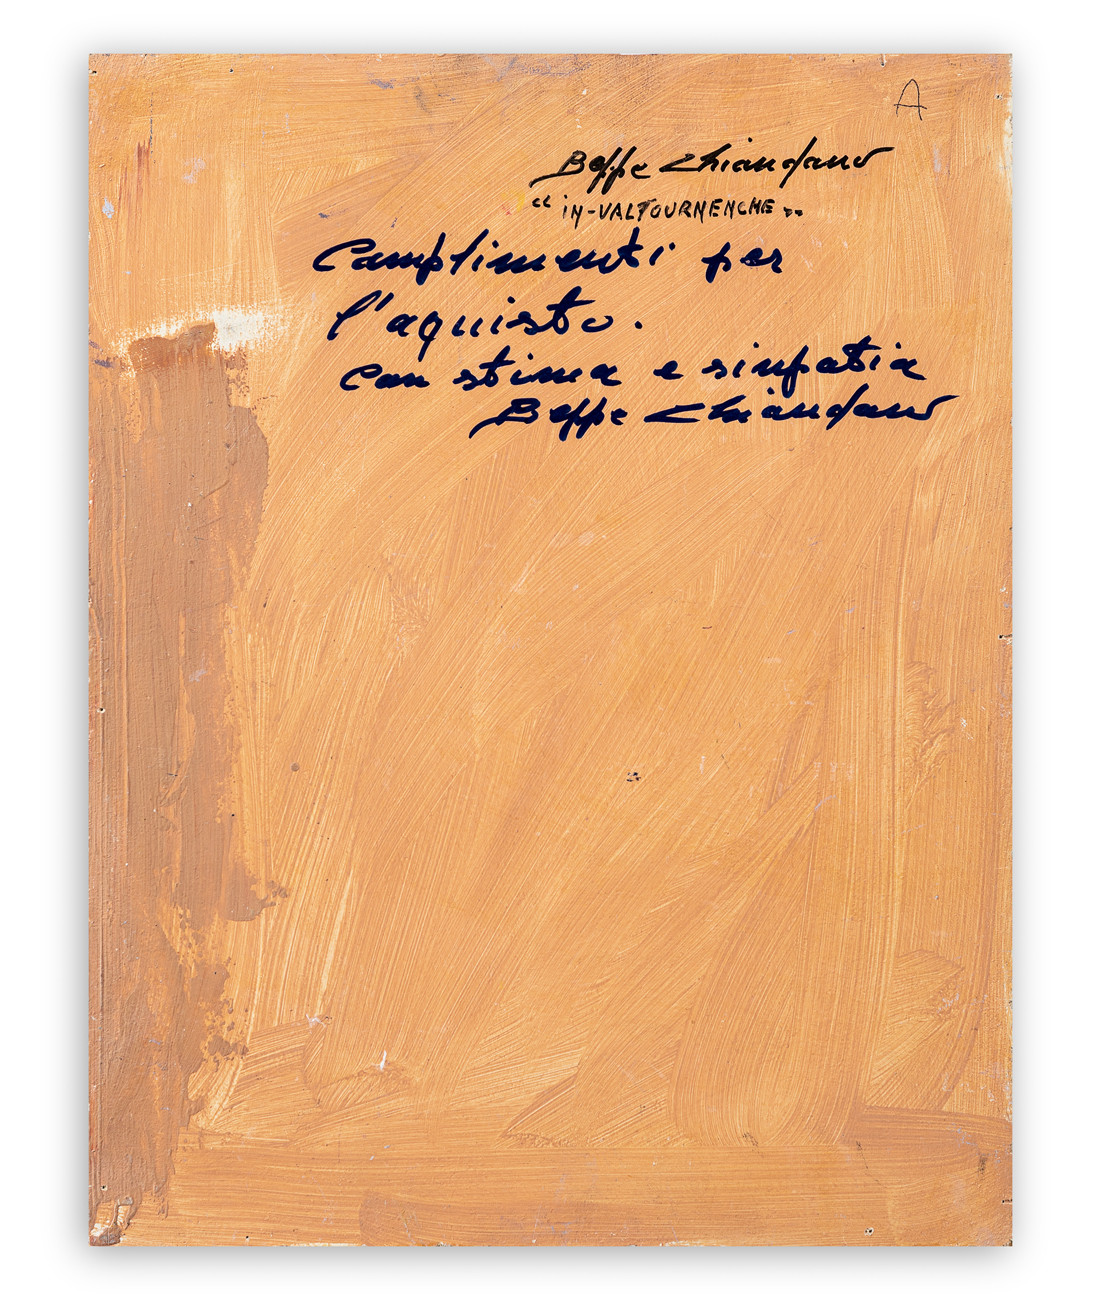 A
Beppe Ghiandano
"IN-VALTOURNENCHE"
Complimenti per
l'aquisto.
con stima e sinpatia
Beppe Ghiandano